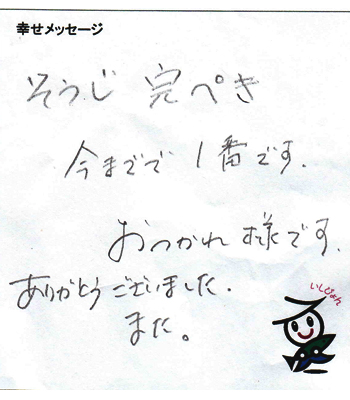 幸せメッセージ
そうじ 完ぺき
今までで 1番です.
おつかれ様です.
ありがとうございました.
また。
いしぴょん